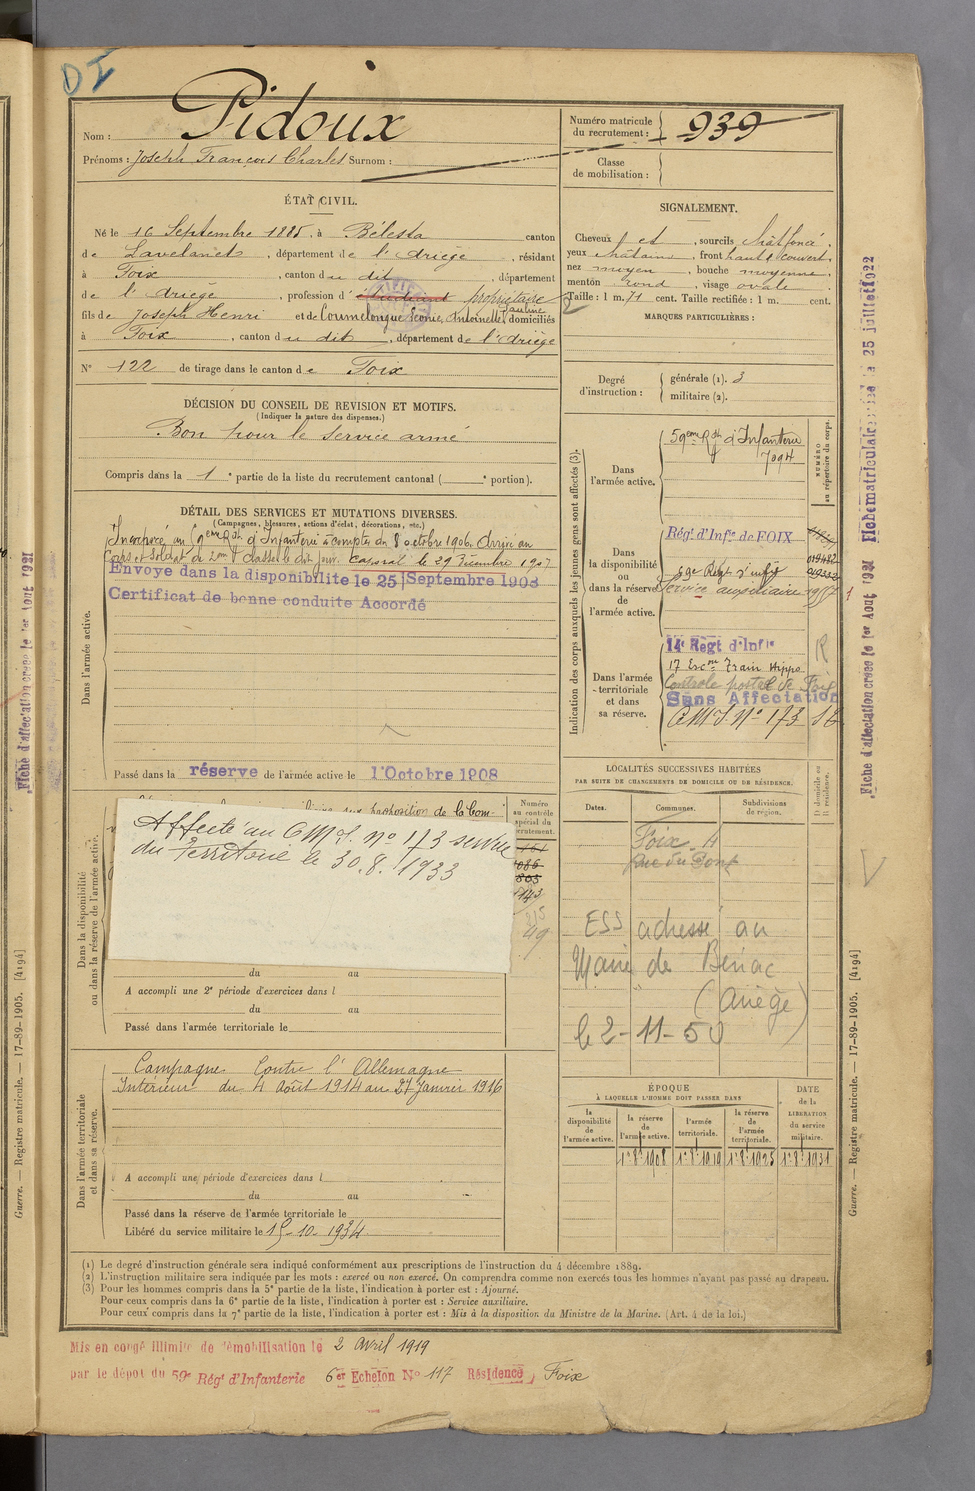 DI
Nom : Pidoux
Prénoms : Joseph François Charles Surnom :
Numéro matricule
du recrutement : 939
Classe
de mobilisation :
ÉTAT CIVIL.
Né le 16 Septembre 1885, à Bélesta canton
de Lavelanet, département de l'Ariège, résidant
à Foix, canton du dit, département
de l'Ariège, profession d' étudiant propriétaire
fils de Joseph Henri et de Courmelongue Léonie, Antoinette, Pauline domiciliés
à Foix, canton du dit, département de l'Ariège
N° 122 de tirage dans le canton de Foix
DÉCISION DU CONSEIL DE REVISION ET MOTIFS.
(Indiquer la nature des dispenses.)
Bon pour le service armé
Compris dans la 1e partie de la liste du recrutement cantonal ( e portion).
SIGNALEMENT.
Cheveux et, sourcils chât foncé,
yeux châtains, front haut & couvert,
nez moyen, bouche moyenne,
menton rond, visage ovale.
Taille : 1 m. 71 cent. Taille rectifiée : 1 m. cent.
MARQUES PARTICULIÈRES :
Degré
d'instruction :
générale (1). 3
militaire (2).
DÉTAIL DES SERVICES ET MUTATIONS DIVERSES.
(Campagnes, blessures, actions d'éclat, décorations, etc.)
Dans l'armée active.
Incorporé au 59eme Rgt d'Infanterie à compter du 8 octobre 1906. Arrivé au
Corps et soldat de 2eme classe le dit jour. Caporal le 29 Décembre 1907
Envoyé dans la disponibilité le 25 Septembre 1908
Certificat de bonne conduite Accordé
Passé dans la réserve de l'armée active le 1er Octobre 1908
Indication des corps auxquels les jeunes gens sont affectés (3).
NUMÉRO
au répertoire du corps.
Dans
l'armée active.
59eme Rgt d'Infanterie
7094
Dans
la disponibilité
ou
dans la réserve
de
l'armée active.
Régt d'Infie de FOIX
59e Regt d'infie
Service auxiliaire
Dans l'armée
territoriale
et dans
sa réserve.
14e Regt d'Infie
17 Escon Train Hippo
Controle postal de Foix
Sans Affectation
CMI N° 173 SE
LOCALITÉS SUCCESSIVES HABITÉES
PAR SUITE DE CHANGEMENTS DE DOMICILE OU DE RÉSIDENCE.
Dates.
Communes.
Subdivisions
de région.
D domicile ou
R résidence.
Foix. 4
Rue du Pont
ESS adressé au
Maire de Bénac
(Ariège)
le 2-11-50
Dans la disponibilité
ou dans la réserve de l'armée active.
proposition de la Com-
Numéro
au contrôle
spécial du
recrutement.
Affecté au CMI N° 173
du Territoire le 30.8.1933
143
215
49
du au
A accompli une 2e période d'exercices dans l
du au
Passé dans l'armée territoriale le
Dans l'armée territoriale
et dans sa réserve.
Campagne Contre l'Allemagne
Intérieur du 4 Août 1914 au 27 Janvier 1916
A accompli une période d'exercices dans l
du au
Passé dans la réserve de l'armée territoriale le
Libéré du service militaire le 15-10-1934
ÉPOQUE
À LAQUELLE L'HOMME DOIT PASSER DANS
la
disponibilité
de
l'armée active.
la réserve
de
l'armée active.
l'armée
territoriale.
la réserve
de
l'armée
territoriale.
DATE
de la
LIBÉRATION
du service
militaire.
1er 8bre 1908
1er 8bre 1919
1er 8bre 1925
1er 8bre 1931
(1) Le degré d'instruction générale sera indiqué conformément aux prescriptions de l'instruction du 4 décembre 1889.
(2) L'instruction militaire sera indiquée par les mots : exercé ou non exercé. On comprendra comme non exercés tous les hommes n'ayant pas passé au drapeau.
(3) Pour les hommes compris dans la 5e partie de la liste, l'indication à porter est : Ajourné.
Pour ceux compris dans la 6e partie de la liste, l'indication à porter est : Service auxiliaire.
Pour ceux compris dans la 7e partie de la liste, l'indication à porter est : Mis à la disposition du Ministre de la Marine. (Art. 4 de la loi.)
Mis en congé illimité de démobilisation le 2 avril 1919
par le dépôt du 59e Régt d'Infanterie 6er Echelon N° 117 Résidence, Foix
Fiche matriculaire créée le 25 juillet 1922
Fiche d'affectation créée le 1er Août 1921
Guerre. — Registre matricule. — 17-89-1905. [4194]
Fiche d'affectation créée le 1er Août 1921
Guerre. — Registre matricule. — 17-89-1905. [4194]